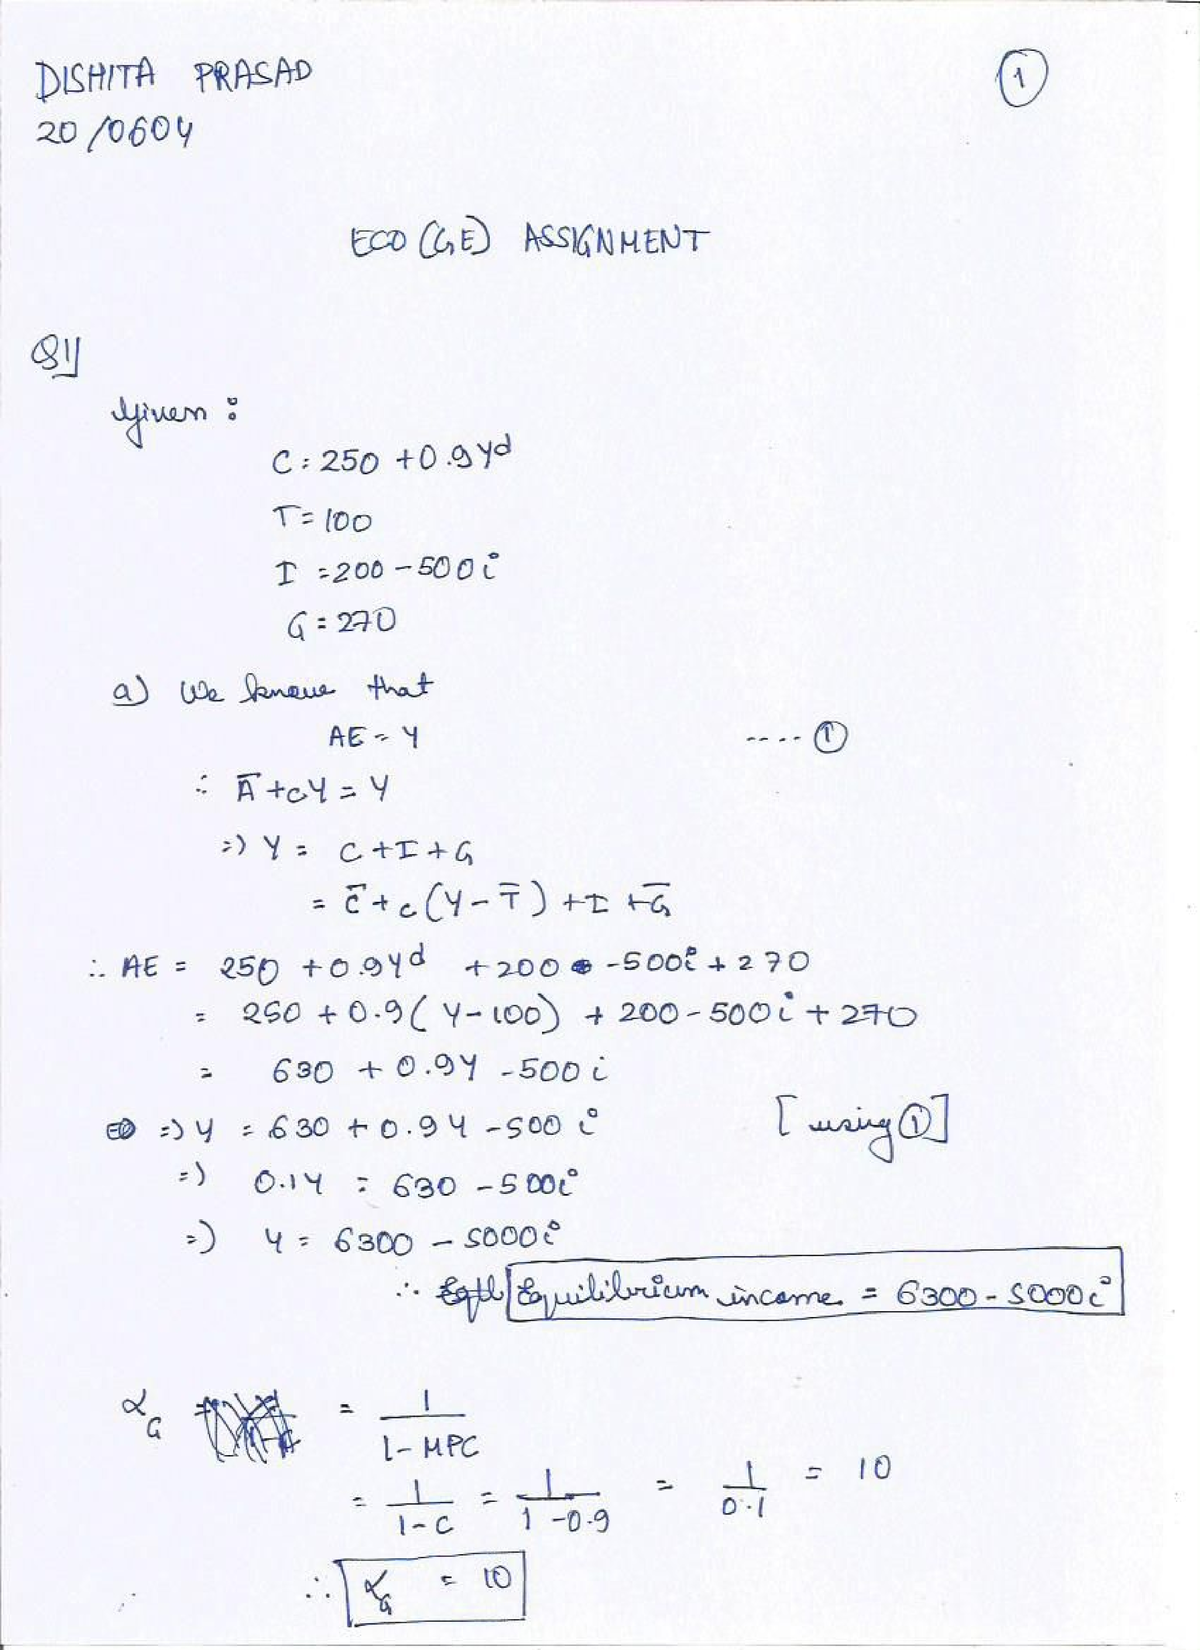 DISHITA PRASAD
①
20/0604
ECO (GE) ASSIGNMENT
Q1)
Given :
C = 250 + 0.9 Yd
T = 100
I = 200 - 500i
G = 270
a) We know that
AE = Y ---- ①
∴ A̅ + cY = Y
=) Y = C + I + G
= C̅ + c (Y - T̅) + I + G̅
∴ AE = 250 + 0.9Yd + 200 - 500i + 270
= 250 + 0.9 (Y - 100) + 200 - 500i + 270
= 630 + 0.9Y - 500i
=) Y = 630 + 0.9Y - 500i [using ①]
=) 0.1Y = 630 - 500i
=) Y = 6300 - 5000i
∴ Equilibrium income = 6300 - 5000i
α_G = 1/(1 - MPC)
= 1/(1 - C) = 1/(1 - 0.9) = 1/0.1 = 10
∴ α_G = 10